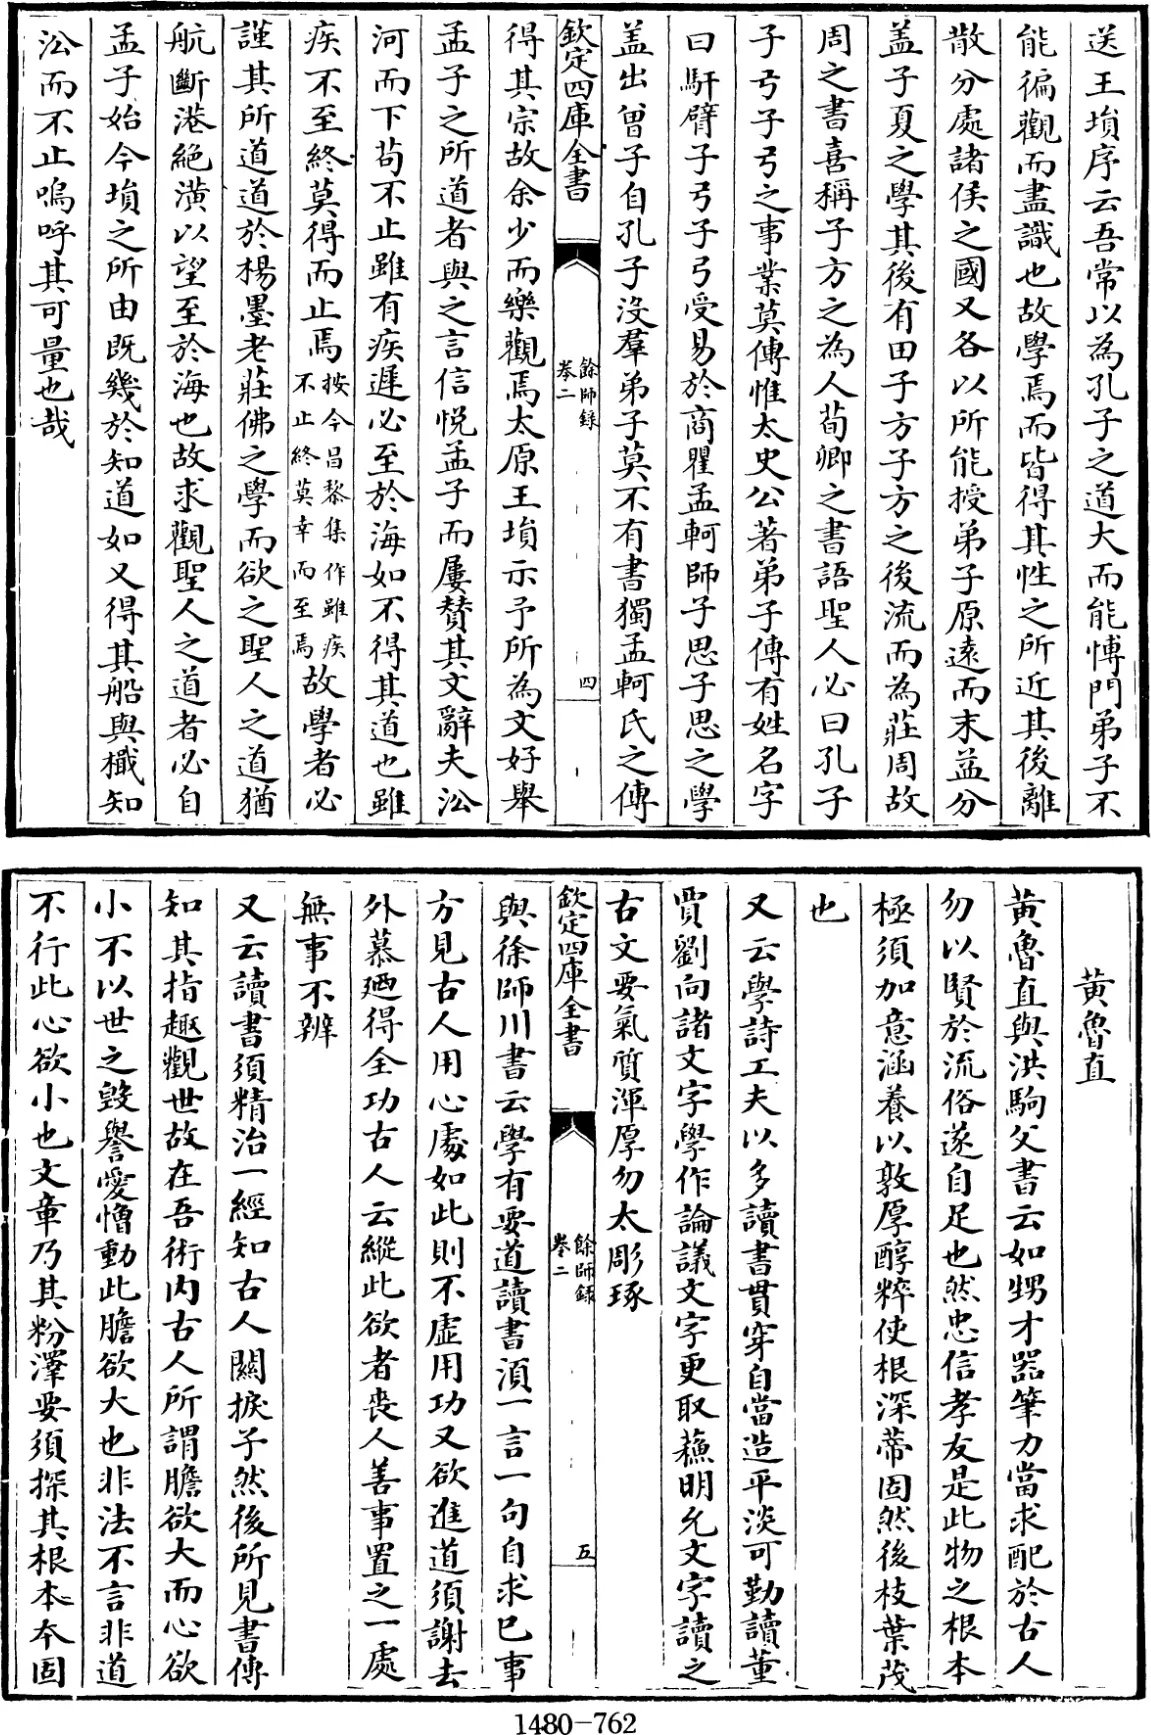 送王塤序云吾常以為孔子之道大而能愽門弟子不
能徧觀而盡識也故學焉而皆得其性之所近其後離
散分處諸侯之國又各以所能授弟子原逺而末益分
盖子夏之學其後有田子方子方之後流而為莊周故
周之書喜稱子方之為人荀卿之書語聖人必曰孔子
子弓子弓之事業莫傳惟太史公著弟子傳有姓名字
曰馯臂子弓子弓受易於商瞿孟軻師子思子思之學
盖出曽子自孔子沒羣弟子莫不有書獨孟軻氏之傳
欽定四庫全書
餘師録
卷二
四
得其宗故余少而樂觀焉太原王塤示予所為文好舉
孟子之所道者與之言信悦孟子而屢贊其文辭夫㳂
河而下茍不止雖有疾遲必至於海如不得其道也雖
疾不至終莫得而止焉按今昌黎集作雖疾不止終莫幸而至焉故學者必
謹其所道道於楊墨老莊佛之學而欲之聖人之道猶
航斷港絶潢以望至於海也故求觀聖人之道者必自
孟子始今塤之所由既幾於知道如又得其船與檝知
㳂而不止嗚呼其可量也哉
黄魯直
黄魯直與洪駒父書云如甥才器筆力當求配於古人
勿以賢於流俗遂自足也然忠信孝友是此物之根本
極須加意涵養以敦厚醇粹使根深蒂固然後枝葉茂
也
又云學詩工夫以多讀書貫穿自當造平淡可勤讀董
賈劉向諸文字學作論議文字更取蘓明允文字讀之
古文要氣質渾厚勿太彫琢
欽定四庫全書
餘師録
卷二
五
與徐師川書云學有要道讀書須一言一句自求已事
方見古人用心處如此則不虚用功又欲進道須謝去
外慕廼得全功古人云縱此欲者喪人善事置之一處
無事不辨
又云讀書須精治一經知古人關捩子然後所見書傳
知其指趣觀世故在吾術内古人所謂膽欲大而心欲
小不以世之毁譽愛憎動此膽欲大也非法不言非道
不行此心欲小也文章乃其粉澤要須探其根本本固
1480-762